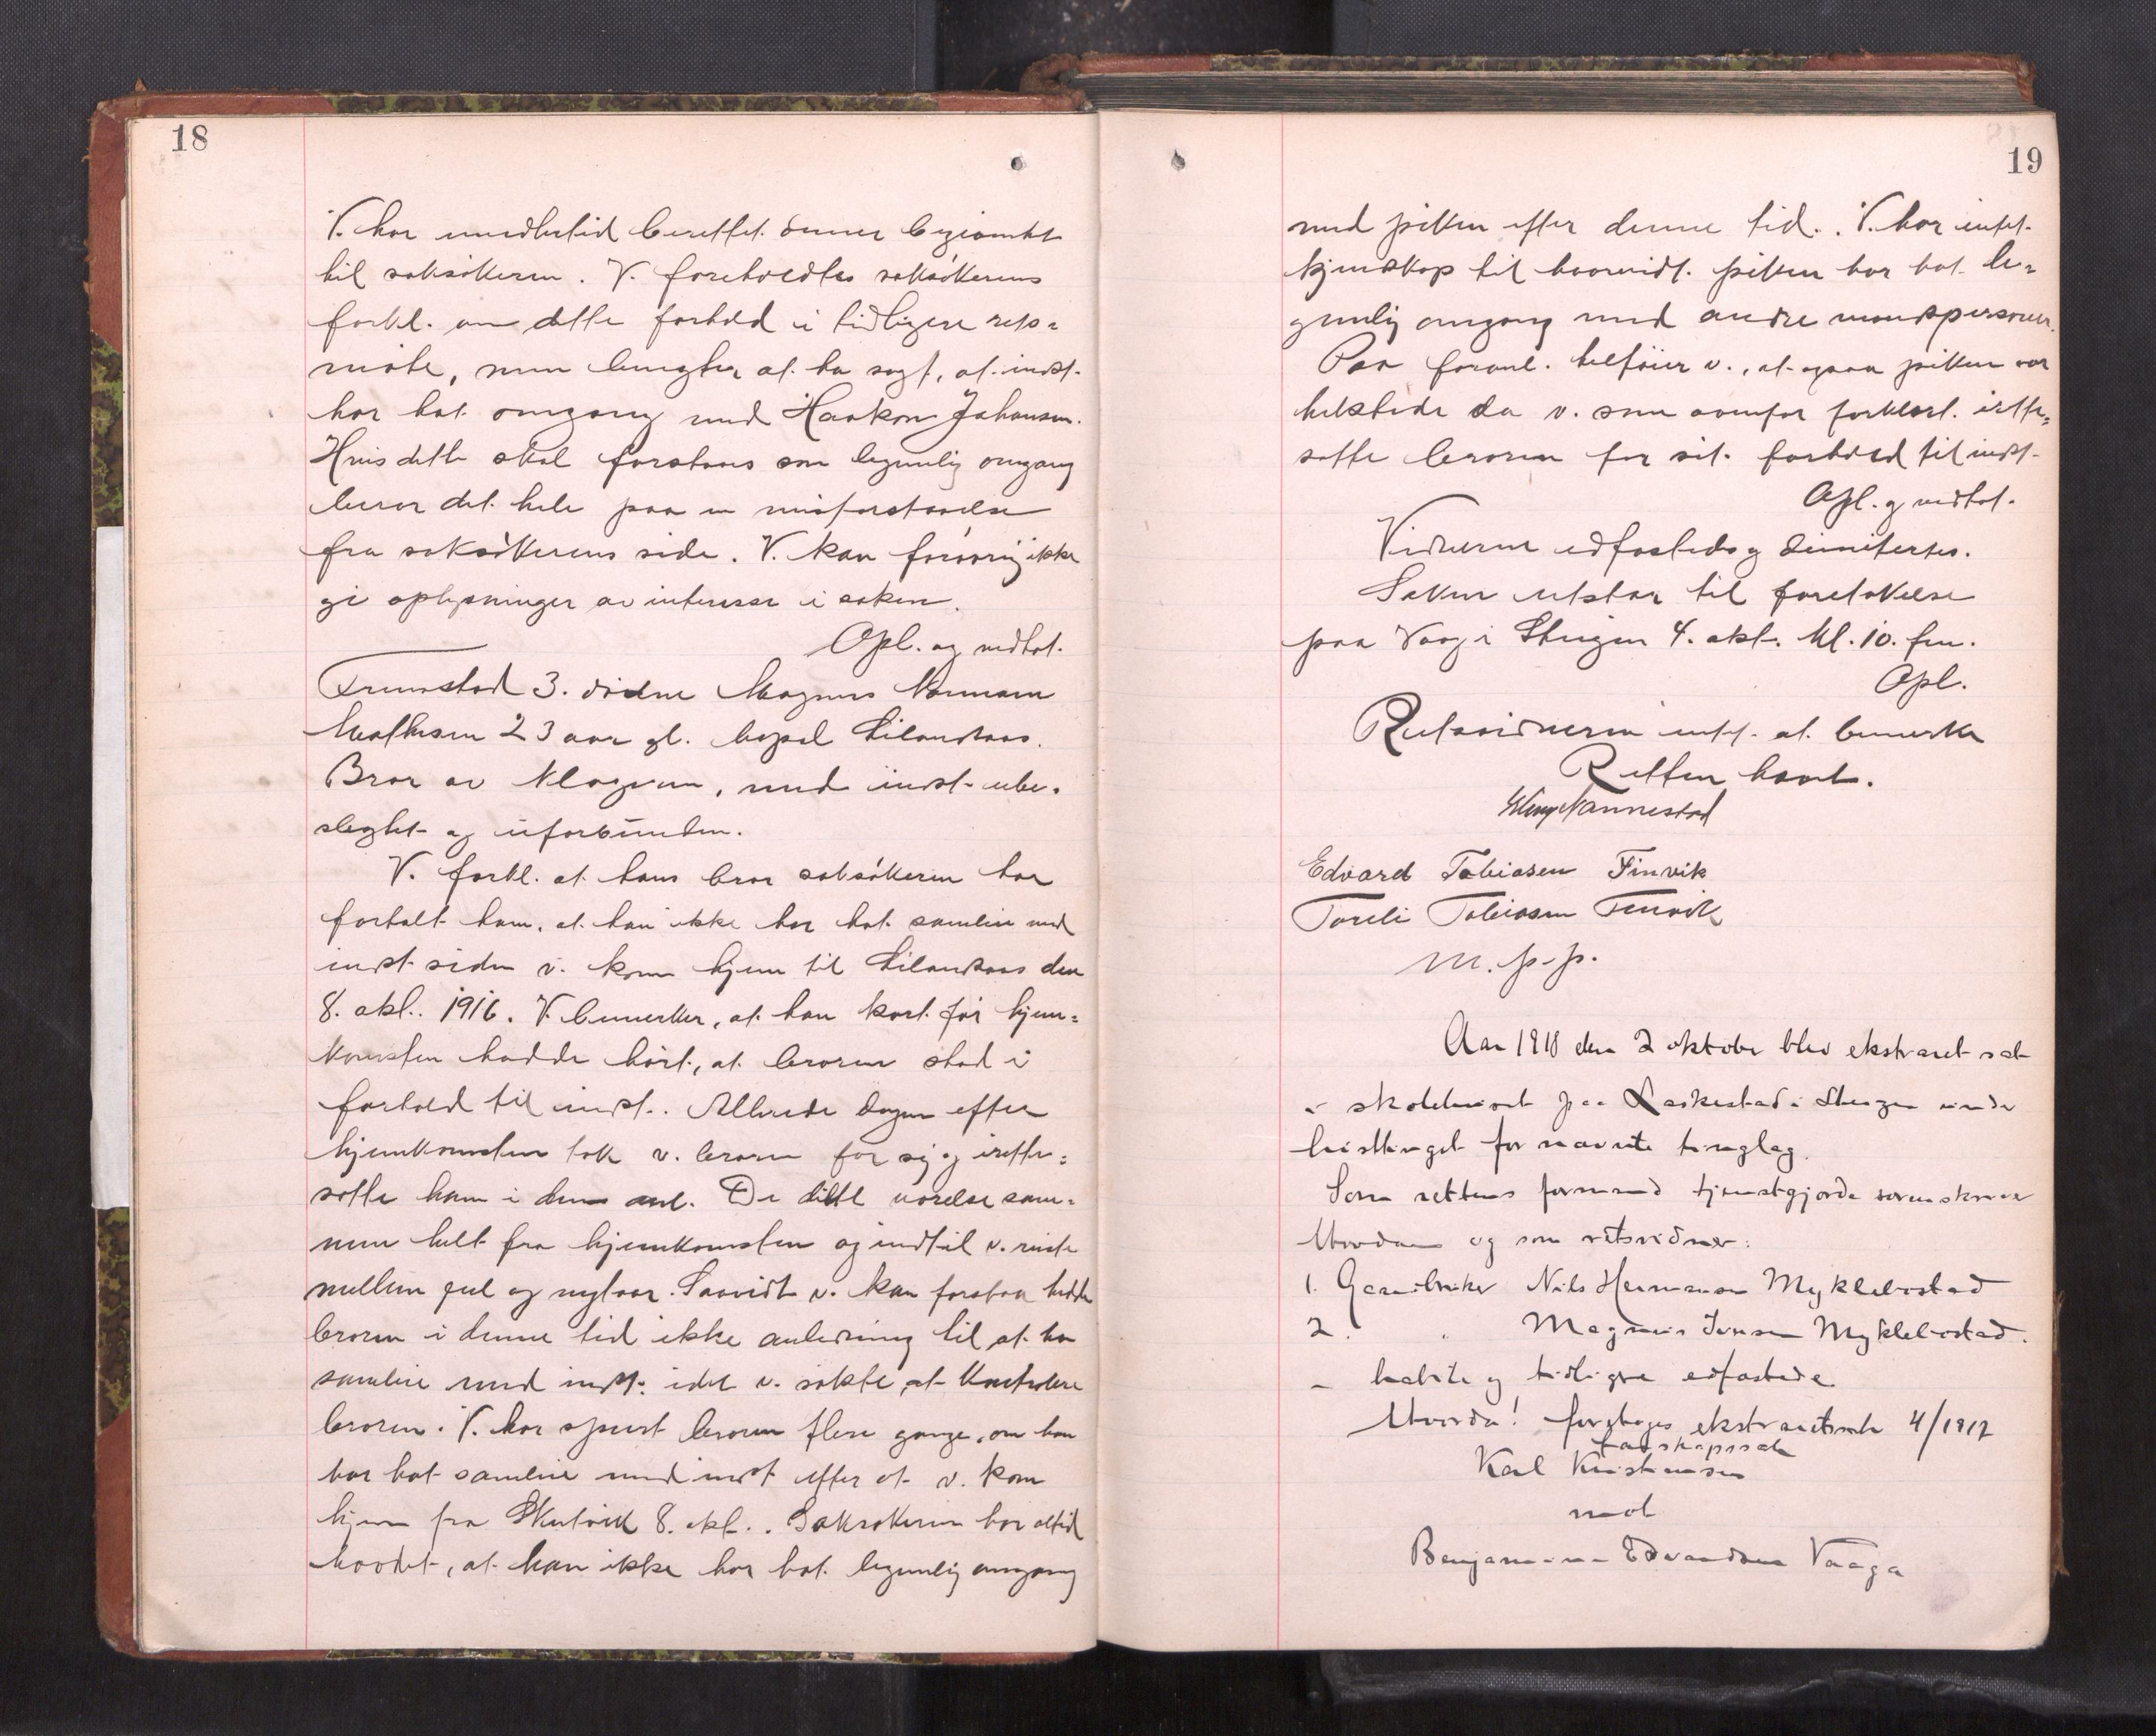 18
V. har imidlertid berettet denne begivenhet
til saksökeren. V. foreholdtes saksökerens
forkl. om dette forhold i tidligere rets=
möte, men benegter at ha sagt, at indst.
har hat omgang med Haakon Johansen.
Hvis dette skal forstaaes som legemlig omgang
beror det hele paa en misforstaaelse
fra saksökerens side. V. kan forövrig ikke
gi oplysninger av interesse i saken.
Opl. og vedtat.
Fremstod 3. vidne Magnus Normann
Mathisen 23 aar gl. bopæl Lilandsaas.
Bror av klageren, med indst. ube=
slegtet og uforbunden.
V. forkl. at hans bror saksökeren har
fortalt ham, at han ikke har hat samleie med
indst. siden v. kom hjem til Lilandsaas den
8. okt. 1916. V. bemerker, at han kort för hjem=
komsten hadde hört, at broren stod i
forhold til indst. Allerede dagen efter
hjemkomsten tok v. broren for sig og irette=
satte ham i den anl. De var sam=
men helt fra hjemkomsten og indtil v. reiste
mellem jul og nytaar. Saavidt v. kan forstaa hadde
broren i denne tid ikke anledning til at ha
samleie med indst. idet v. sökte at kontrolere
broren. V. har spurt broren flere gange, om han
har hat samleie med indst. efter at v. kom
hjem fra Skutvik 8. okt. Saksökeren har altid
hævdet, at han ikke har hat legemlig omgang
19
med piken efter denne tid. V. har intet
kjendskap til hvorvidt piken har hat le=
gemlig omgang med andre mandspersoner.
Paa foranl. tilföier v., at ogsaa piken var
tilstede da v. som ovenfor forklart irette=
satte broren for sit forhold til indst.
Opl. og vedtat.
Vidnerne edfæstedes og dimitertes.
Saken utstaar til foretakelse
paa Vaag i Steigen 4. okt. kl. 10. fm.
Opl.
Retsvidnerne intet at bemerke
Retten hævet.
Nannestad
Edvard Tobiasen Finvik
Toreli Tobiasen Finvik
m. p. p.
Aar 1918 den 2 oktober blev ekstraret sat
i skolehuset paa Laskestad i Steigen under
hösttinget for nævnte tinglag.
Som rettens formand tjenestgjorde sorenskriver
og som retsvidner:
1. Gaardbruker Nils Hermansen Myklebostad
2. " Magnus Jensen Myklebostad.
- habile og tidligere edfæstede.
Hvorda! foretoges ekstraretssak 4/1917
farskapssak
Karl Kristiansen
mot
Benjamine Edvardsen Vaaga